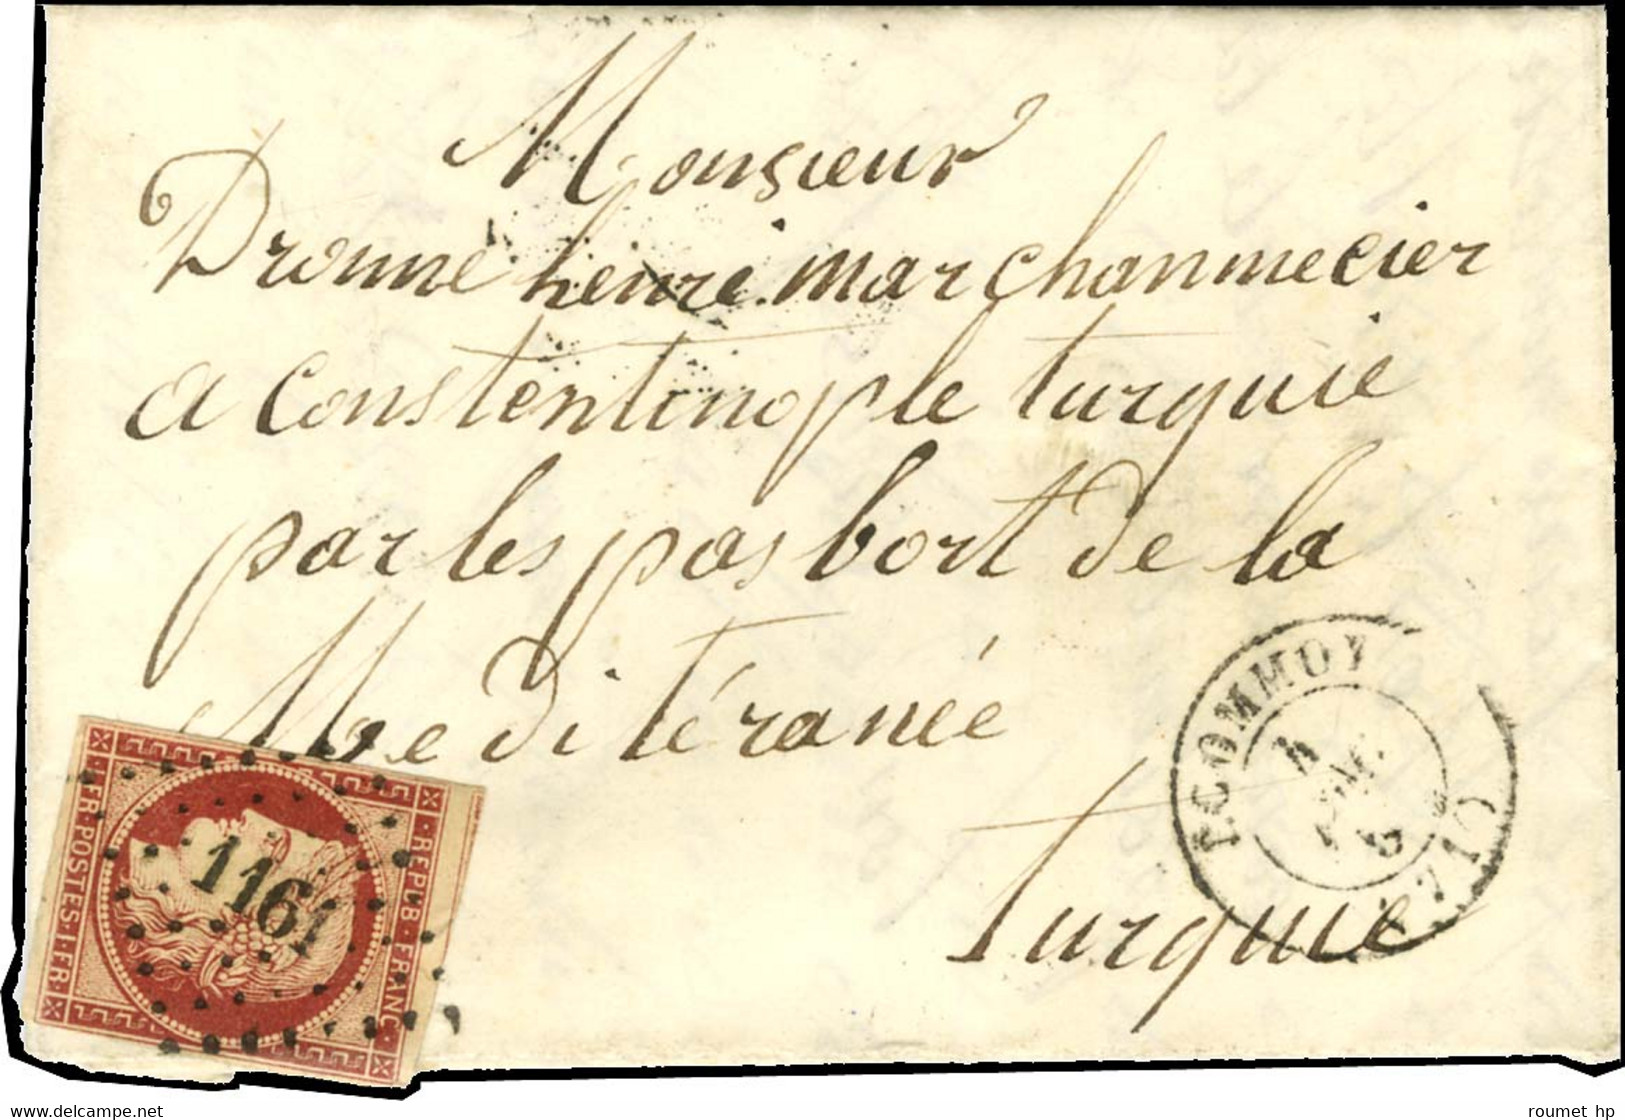 Monsieur
Dronne henri marchanmecier
a Constentinople turquie
par les pasbort de la
Meditéranée
turquie
ECOMMOY
4
(71)
REPUB. FRANC.
1. FR. POSTES. 1. FR.
1161
www.delcampe.com
roumet hp